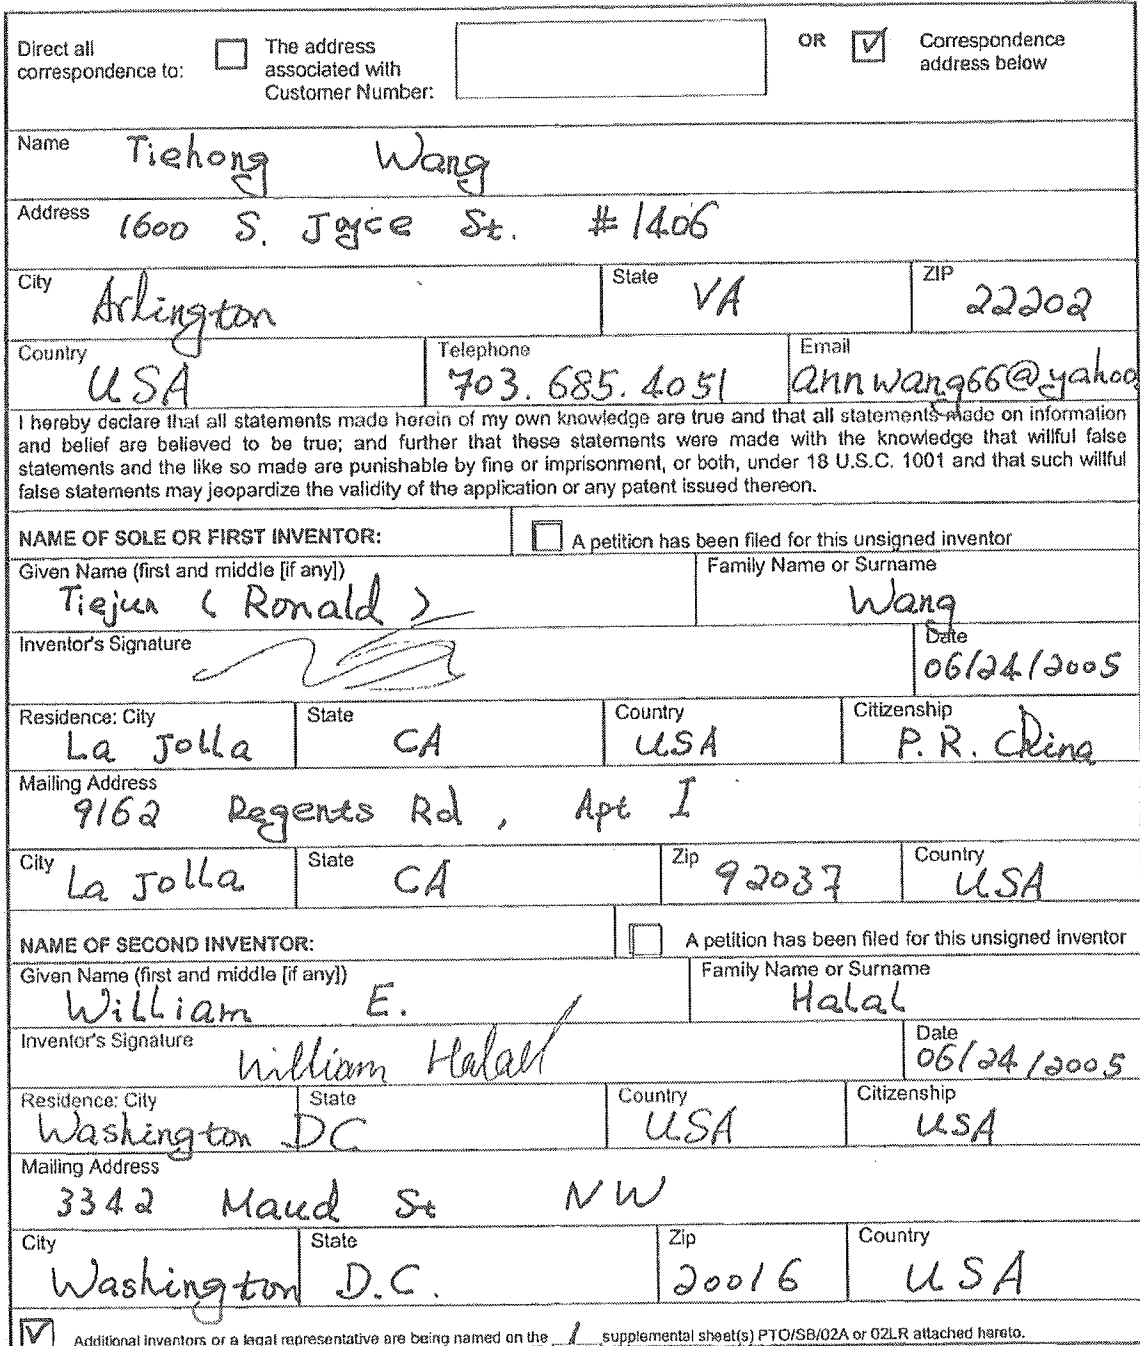 Direct all correspondence to: The address associated with Customer Number: OR Correspondence address below
Name Tiehong Wang
Address 1600 S. Joyce St. #1406
City Arlington State VA ZIP 22202
Country USA Telephone 703.685.4051 Email annwang66@yahoo
I hereby declare that all statements made herein of my own knowledge are true and that all statements made on information
and belief are believed to be true; and further that these statements were made with the knowledge that willful false
statements and the like so made are punishable by fine or imprisonment, or both, under 18 U.S.C. 1001 and that such willful
false statements may jeopardize the validity of the application or any patent issued thereon.
NAME OF SOLE OR FIRST INVENTOR: A petition has been filed for this unsigned inventor
Given Name (first and middle [if any]) Family Name or Surname
Tiejun (Ronald) Wang
Inventor's Signature Date
06/24/2005
Residence: City State Country Citizenship
La Jolla CA USA P.R. China
Mailing Address
9162 Regents Rd, Apt I
City La Jolla State CA Zip 92037 Country USA
NAME OF SECOND INVENTOR: A petition has been filed for this unsigned inventor
Given Name (first and middle [if any]) Family Name or Surname
William E. Halal
Inventor's Signature William Halal Date 06/24/2005
Residence: City State Country Citizenship
Washington DC USA USA
Mailing Address
3342 Maud St NW
City State Zip Country
Washington D.C. 20016 USA
Additional inventors or a legal representative are being named on the 1 supplemental sheet(s) PTO/SB/02A or 02LR attached hereto.